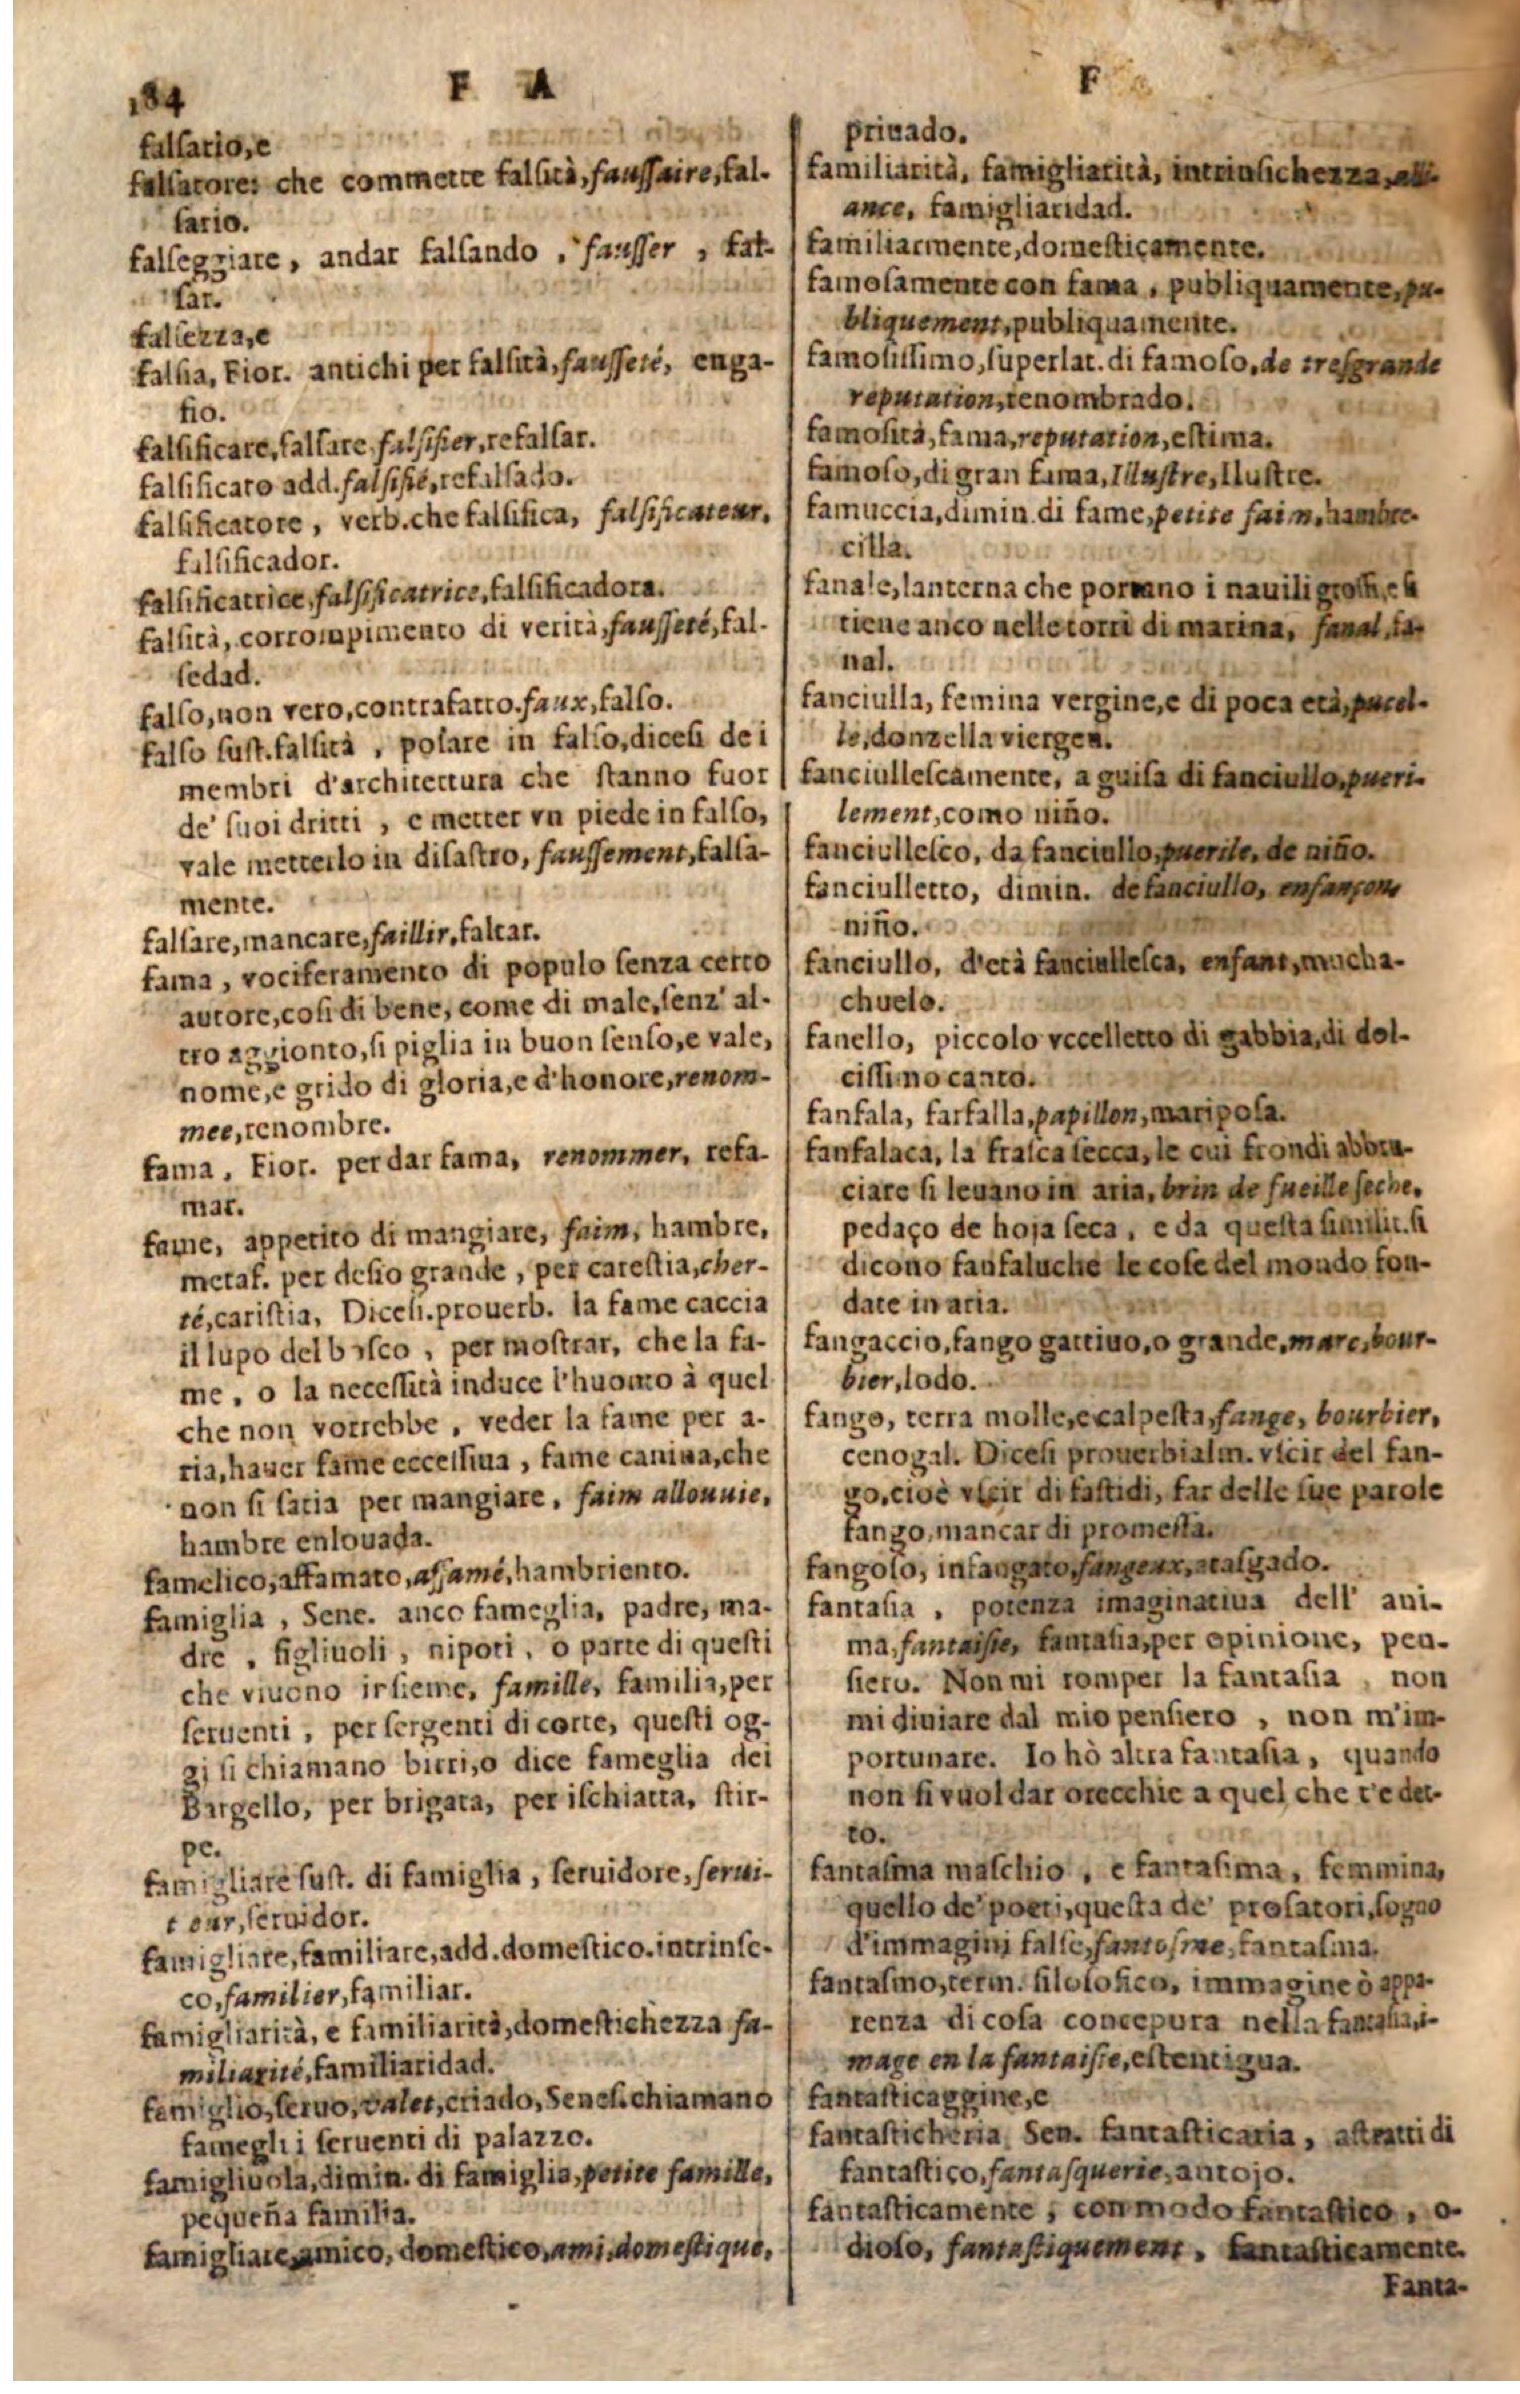 184
F A
F
falſario,e
falſatore: che commette falſità, fauſſaire, fal-
ſario.
falſeggiare, andar falſando, fauſſer, fal-
ſar.
falſezza,e
falſia, Fior. antichi per falſità, fauſſeté, enga-
ño.
falſificare, falſare, falſifier, refalſar.
falſificato add. falſifié, refalſado.
falſificatore, verb. che falſifica, falſificateur,
falſificador.
falſificatrice, falſificatrice, falſificadora.
falſità, corrompimento di verità, fauſſeté, fal-
ſedad.
falſo, non vero, contrafatto. faux, falſo.
falſo ſuſt. falſità, poſare in falſo, diceſi de i
membri d'architettura che ſtanno fuor
de' ſuoi dritti, e metter vn piede in falſo,
vale metterlo in diſaſtro, fauſſement, falſa-
mente.
falſare, mancare, faillir, faltar.
fama, vociferamento di populo ſenza certo
autore, coſi di bene, come di male, ſenz' al-
tro aggionto, ſi piglia in buon ſenſo, e vale,
nome, e grido di gloria, e d'honore, renom-
mee, renombre.
fama, Fior. per dar fama, renommer, refa-
mar.
fame, appetito di mangiare, faim, hambre,
metaf. per deſio grande, per careſtia, cher-
té, cariſtia, Diceſi. prouerb. la fame caccia
il lupo del boſco, per moſtrar, che la fa-
me, o la neceſſità induce l'huomo à quel
che non vorrebbe, veder la fame per a-
ria, hauer fame ecceſſiua, fame canina, che
non ſi ſatia per mangiare, faim allouuie,
hambre enlouada.
famelico, affamato, affamé, hambriento.
famiglia, Sene. anco fameglia, padre, ma-
dre, figliuoli, nipoti, o parte di queſti
che viuono inſieme, famille, familia, per
ſeruenti, per ſergenti di corte, queſti og-
gi ſi chiamano birri, o dice fameglia dei
Bargello, per brigata, per iſchiatta, ſtir-
pe.
famigliare ſuſt. di famiglia, ſeruidore, ſerui-
teur, ſeruidor.
famigliare, familiare, add. domeſtico. intrinſe-
co, familier, familiar.
famigliarità, e familiarità, domeſtichezza fa-
miliarité, familiaridad.
famiglio, ſeruo, valet, criado, Seneſ. chiamano
famegli i ſeruenti di palazzo.
famigliuola, dimin. di famiglia, petite famille,
pequeña familia.
famigliare, amico, domeſtico, ami, domeſtique,
priuado.
familiarità, famigliarità, intrinſichezza, alli-
ance, famigliaridad.
familiarmente, domeſticamente.
famoſamente con fama, publiquamente, pu-
bliquement, publiquamente.
famoſiſſimo, ſuperlat. di famoſo, de treſgrande
reputation, renombrado.
famoſità, fama, reputation, eſtima.
famoſo, di gran fama, Illuſtre, Iluſtre.
famuccia, dimin. di fame, petite faim, hambre-
cilla.
fanale, lanterna che portano i nauili groſſi, e ſi
tiene anco nelle torri di marina, fanal, fa-
nal.
fanciulla, femina vergine, e di poca età, pucel-
le, donzella viergen.
fanciulleſcamente, a guiſa di fanciullo, pueri-
lement, como niño.
fanciulleſco, da fanciullo, puerile, de niño.
fanciulletto, dimin. de fanciullo, enfançon,
niño.
fanciullo, d'età fanciulleſca, enfant, mucha-
chuelo.
fanello, piccolo vccelletto di gabbia, di dol-
ciſſimo canto.
fanfala, farfalla, papillon, maripoſa.
fanfalaca, la fraſca ſecca, le cui frondi abbru-
ciate ſi leuano in aria, brin de fueille ſeche,
pedaço de hoja ſeca, e da queſta ſimilit. ſi
dicono fanfaluche le coſe del mondo fon-
date in aria.
fangaccio, fango gattiuo, o grande, mare, bour-
bier, lodo.
fango, terra molle, e calpeſta, fange, bourbier,
cenogal. Diceſi prouerbialm. vſcir del fan-
go, cioè vſcir di faſtidi, far delle ſue parole
fango, mancar di promeſſa.
fangoſo, infangato, fangeux, ataſgado.
fantaſia, potenza imaginatiua dell' ani-
ma, fantaiſie, fantaſia, per opinione, pen-
ſiero. Non mi romper la fantaſia, non
mi diuiare dal mio penſiero, non m'im-
portunare. Io hò altra fantaſia, quando
non ſi vuol dar orecchie a quel che t'e det-
to.
fantaſma maſchio, e fantaſima, femmina,
quello de' poeti, queſta de' proſatori, ſogno
d'immagini falſe, fantoſme, fantaſma.
fantaſmo, term. filoſofico, immagine ò appa-
renza di coſa concepura nella fantaſia, i-
mage en la fantaiſie, eſtentigua.
fantaſticaggine, e
fantaſticheria, Sen. fantaſticaria, aſtratti di
fantaſtico, fantaſquerie, antojo.
fantaſticamente, con modo fantaſtico, o-
dioſo, fantaſtiquement, fantaſticamente.
Fanta-